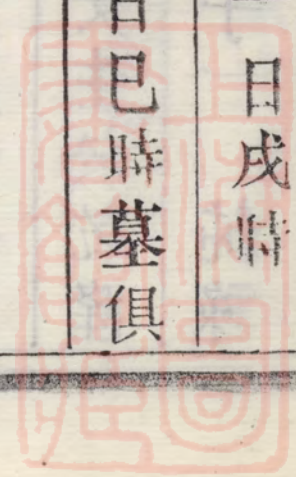 日戌時
日巳時墓俱